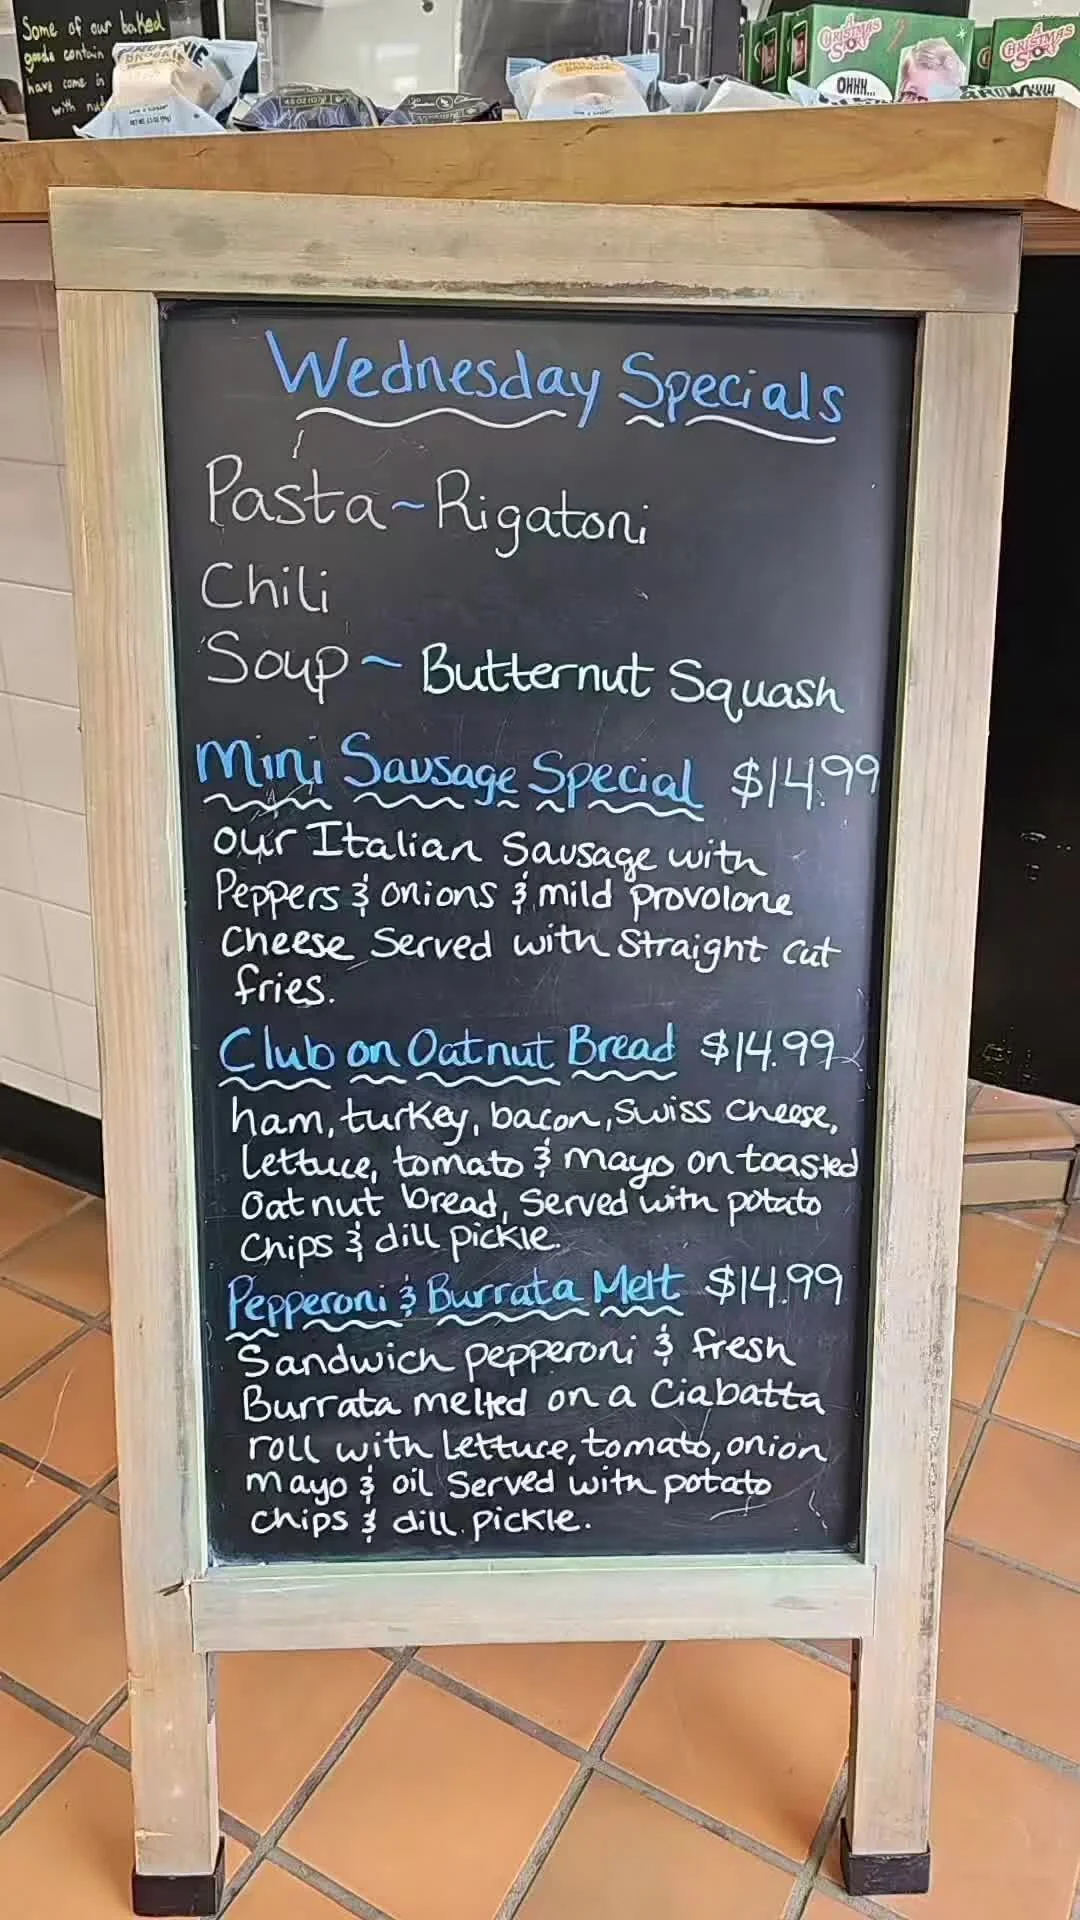 Some of our baked
goods contain
have come in
with nuts
A CHRISTMAS STORY
OHHH...
A CHRISTMAS STORY
Wednesday Specials
Pasta ~ Rigatoni
Chili
Soup ~ Butternut Squash
Mini Sausage Special $14.99
our Italian Sausage with
Peppers & onions & mild provolone
Cheese Served with Straight cut
fries.
Club on Oatnut Bread $14.99
ham, turkey, bacon, Swiss Cheese,
Lettuce, tomato & mayo on toasted
Oatnut bread, Served with potato
Chips & dill pickle.
Pepperoni & Burrata Melt $14.99
Sandwich pepperoni & fresh
Burrata melted on a Ciabatta
roll with Lettuce, tomato, onion
mayo & oil Served with potato
chips & dill pickle.